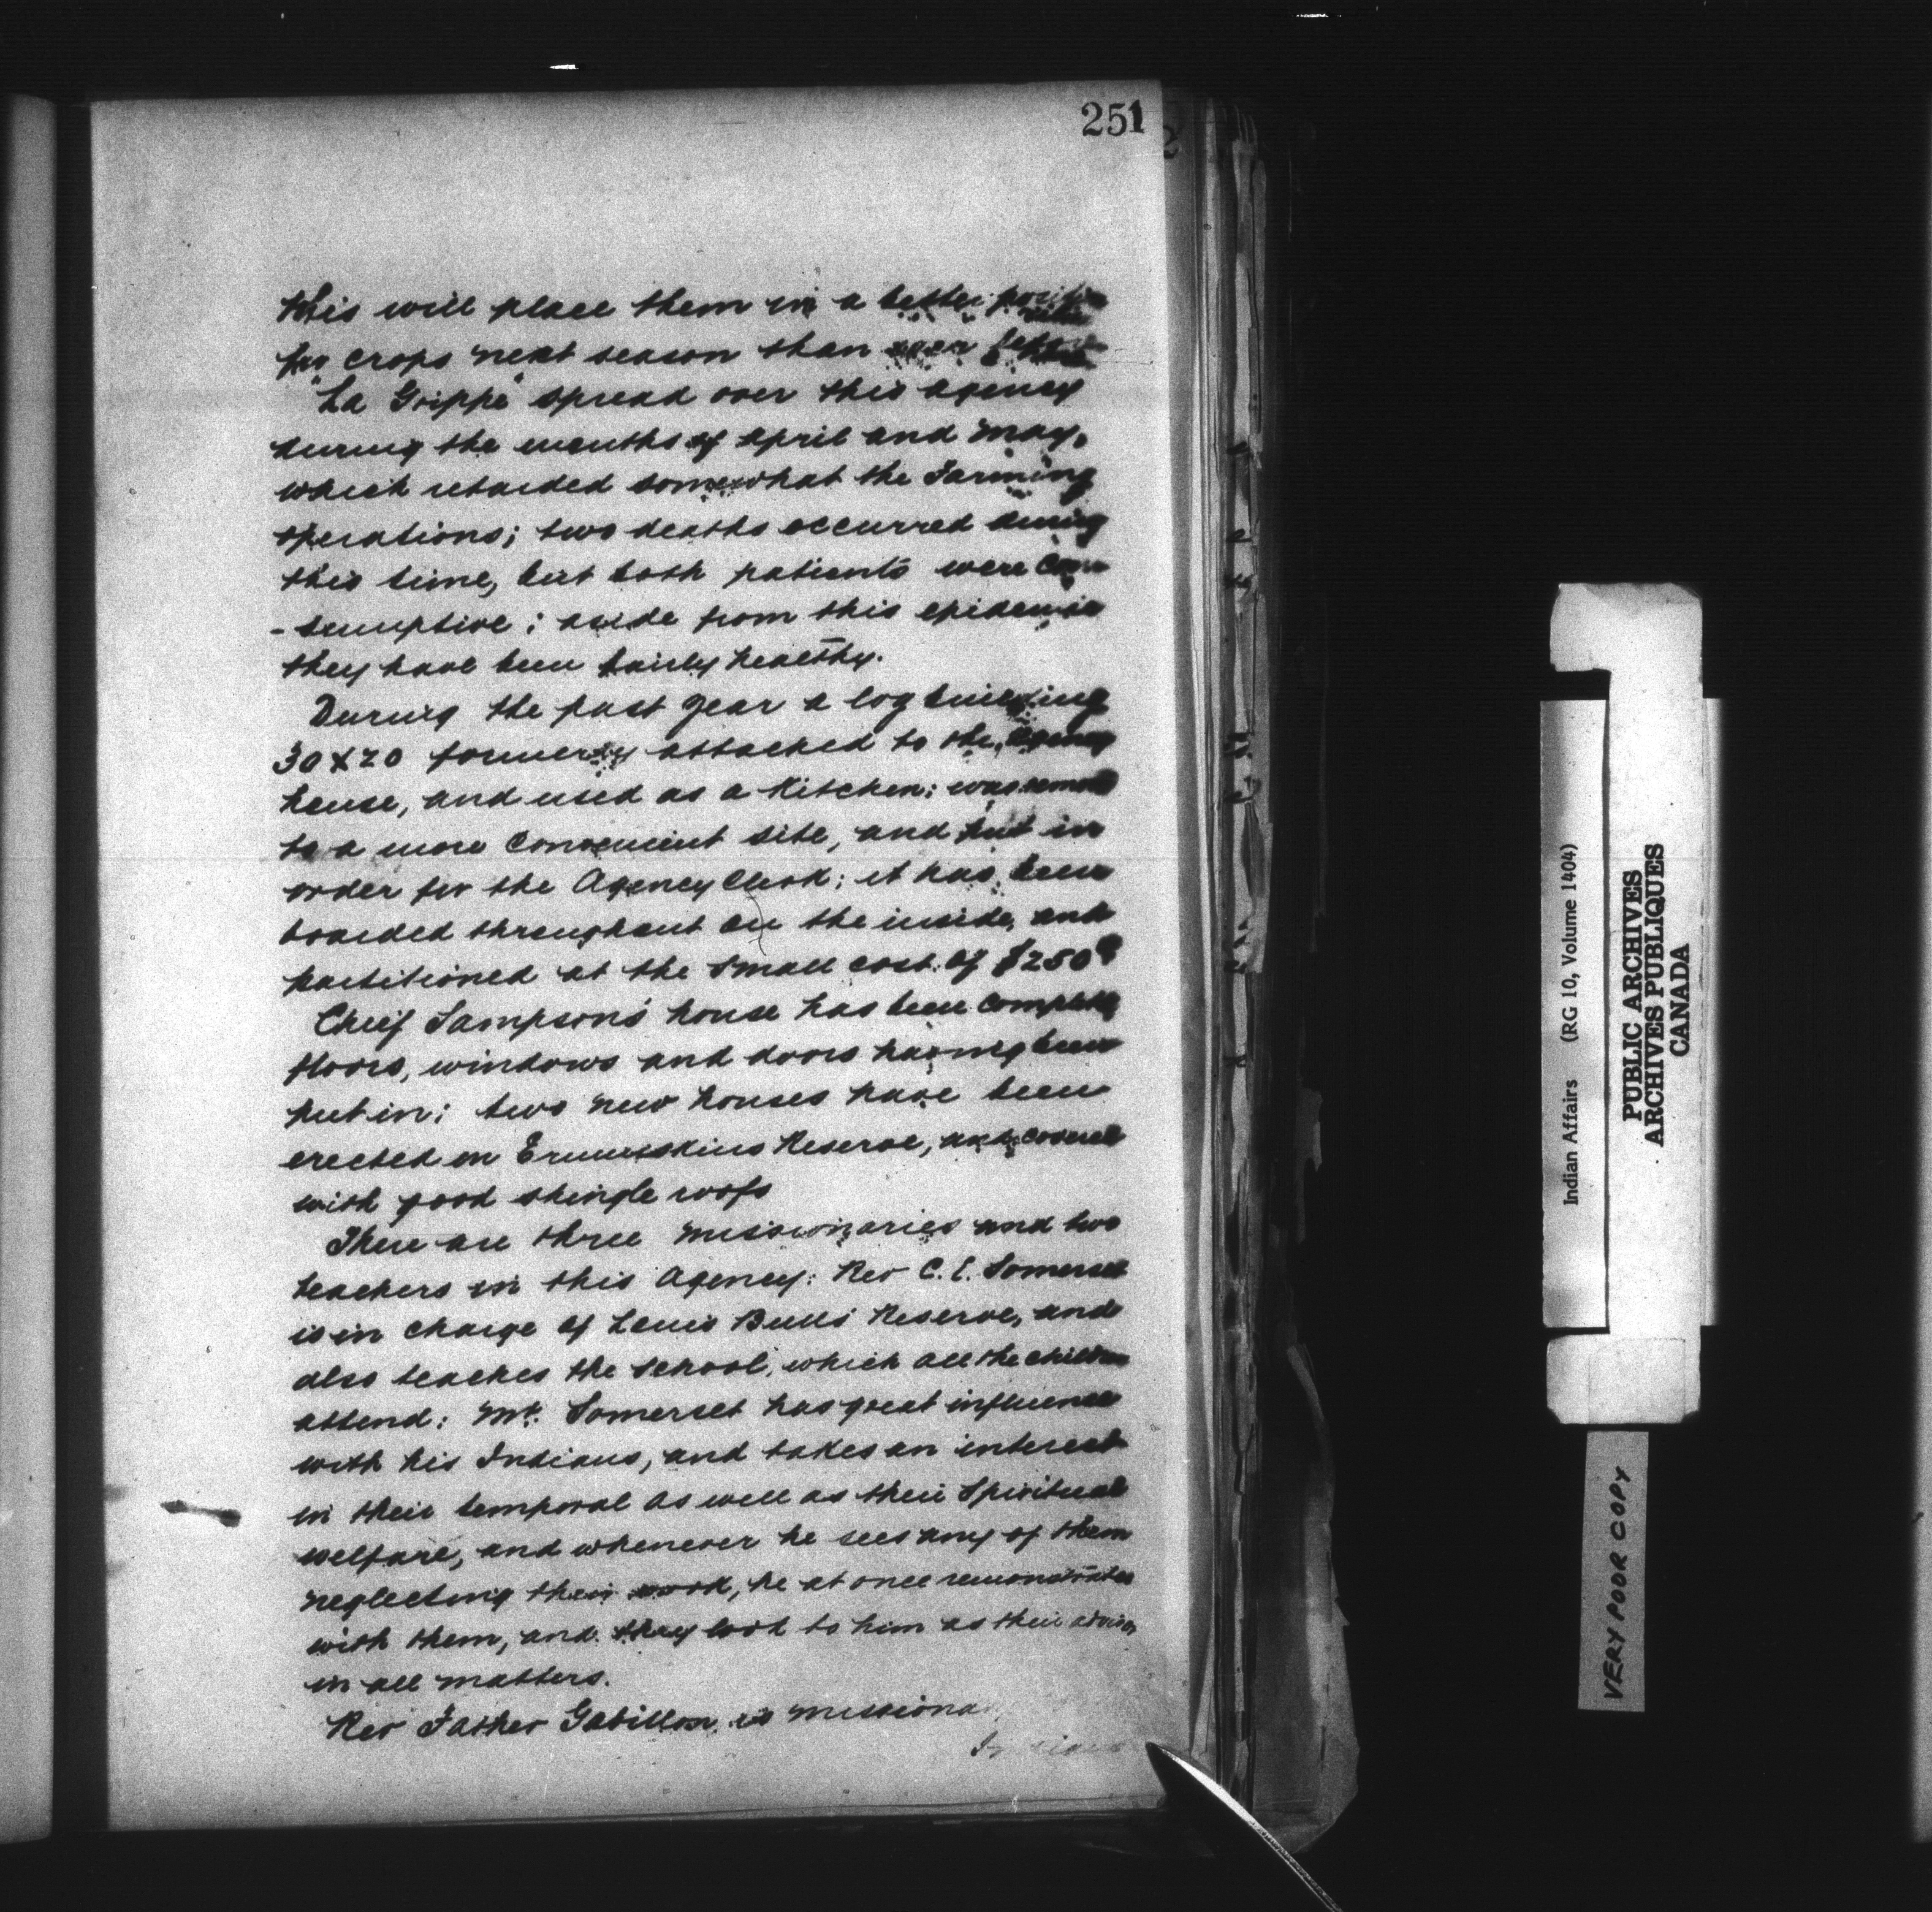 251
this will place them in a better position
for crops next season than ever before
"La Grippe" spread over this agency
during the months of April and May,
which retarded somewhat the Farming
operations; two deaths occurred during
this time, but both patients were Con
-sumptive; aside from this epidemic
they have been fairly healthy.
During the past year a log building
30 x 20 formerly attached to the Agency
house, and used as a Kitchen; was
to a more Convenient site, and put in
order for the Agency Clerk; it has been
boarded throughout on the inside, and
partitioned at the small cost of $250
Chief Sampson's house has been
floors, windows and doors having been
put in; two new houses have been
erected on Ermineskins Reserve, and covered
with good shingle roofs
There are three missionaries and two
teachers in this Agency: Rev C. E. Somerset
is in charge of Louis Bull's Reserve, and
also teaches the school, which all the children
attend: Mr. Somerset has great influence
with his Indians, and takes an interest
in their temporal as well as their Spiritual
welfare, and whenever he sees any of them
neglecting their work, he at once remonstrates
with them, and they look to him as their
in all matters.
Rev Father Gabillon is
Indian Affairs (RG 10, Volume 1404)
PUBLIC ARCHIVES
ARCHIVES PUBLIQUES
CANADA
VERY POOR COPY